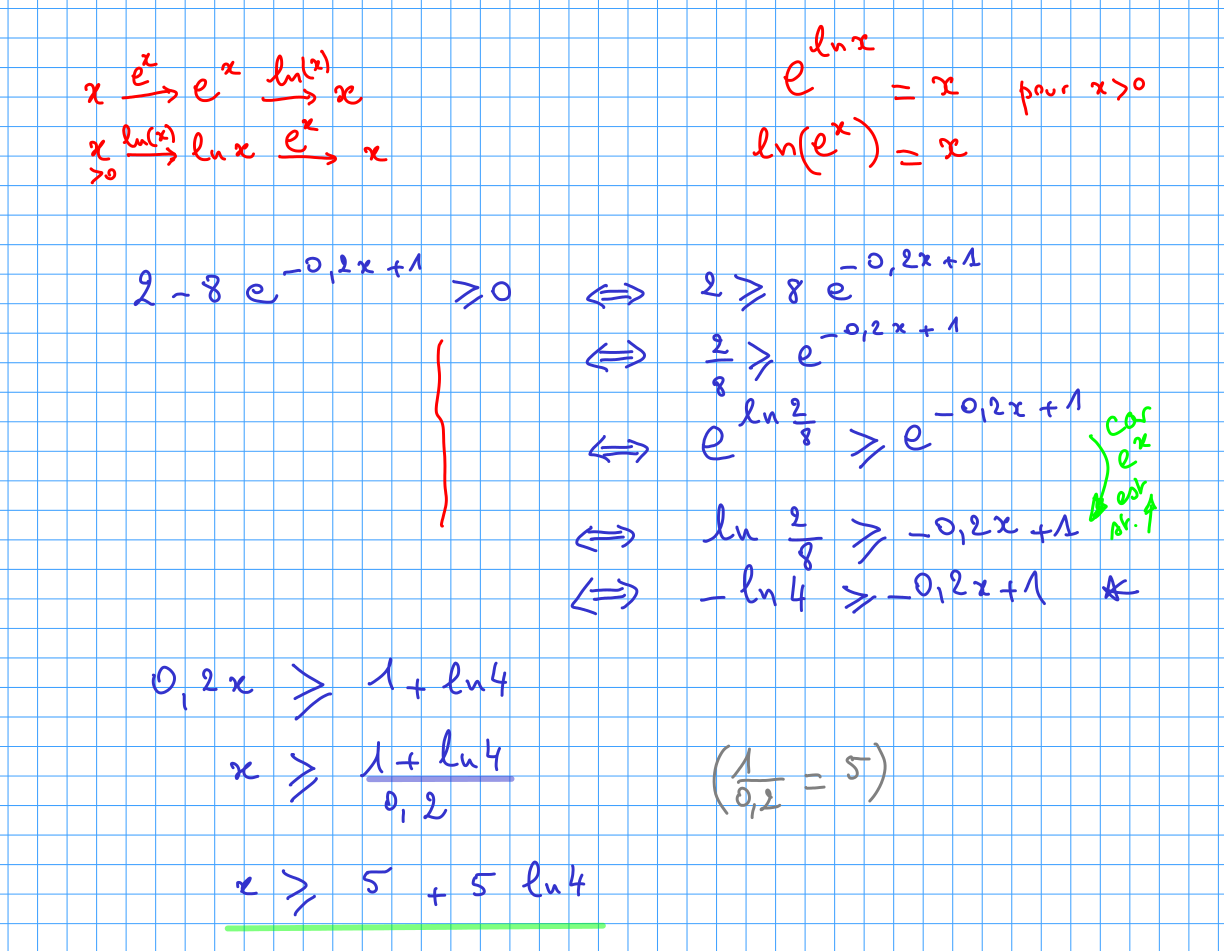 x →(e^x) e^x →(ln(x)) x
x >0 →(ln(x)) ln x →(e^x) x
e^(ln x) = x pour x>0
ln(e^x) = x
2 - 8 e^(-0,2x+1) ⩾ 0 ⟺ 2 ⩾ 8 e^(-0,2x+1)
⟺ 2/8 ⩾ e^(-0,2x+1)
⟺ e^(ln 2/8) ⩾ e^(-0,2x+1)
car e^x est st. ↑
⟺ ln 2/8 ⩾ -0,2x+1
⟺ - ln 4 ⩾ -0,2x+1 *
0,2x ⩾ 1 + ln 4
x ⩾ (1 + ln 4)/0,2 (1/0,2 = 5)
x ⩾ 5 + 5 ln 4